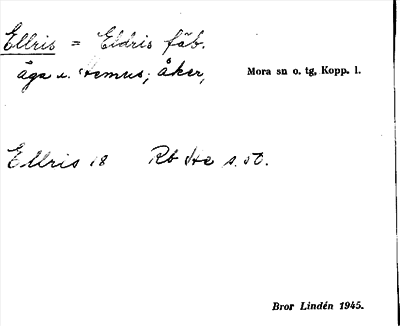 Ellris = Eldris fäb.
äga u. Hemus; åker,
Mora sn o. tg, Kopp. l.
Ellris 18 Rb s. 50.
Bror Lindén 1945.